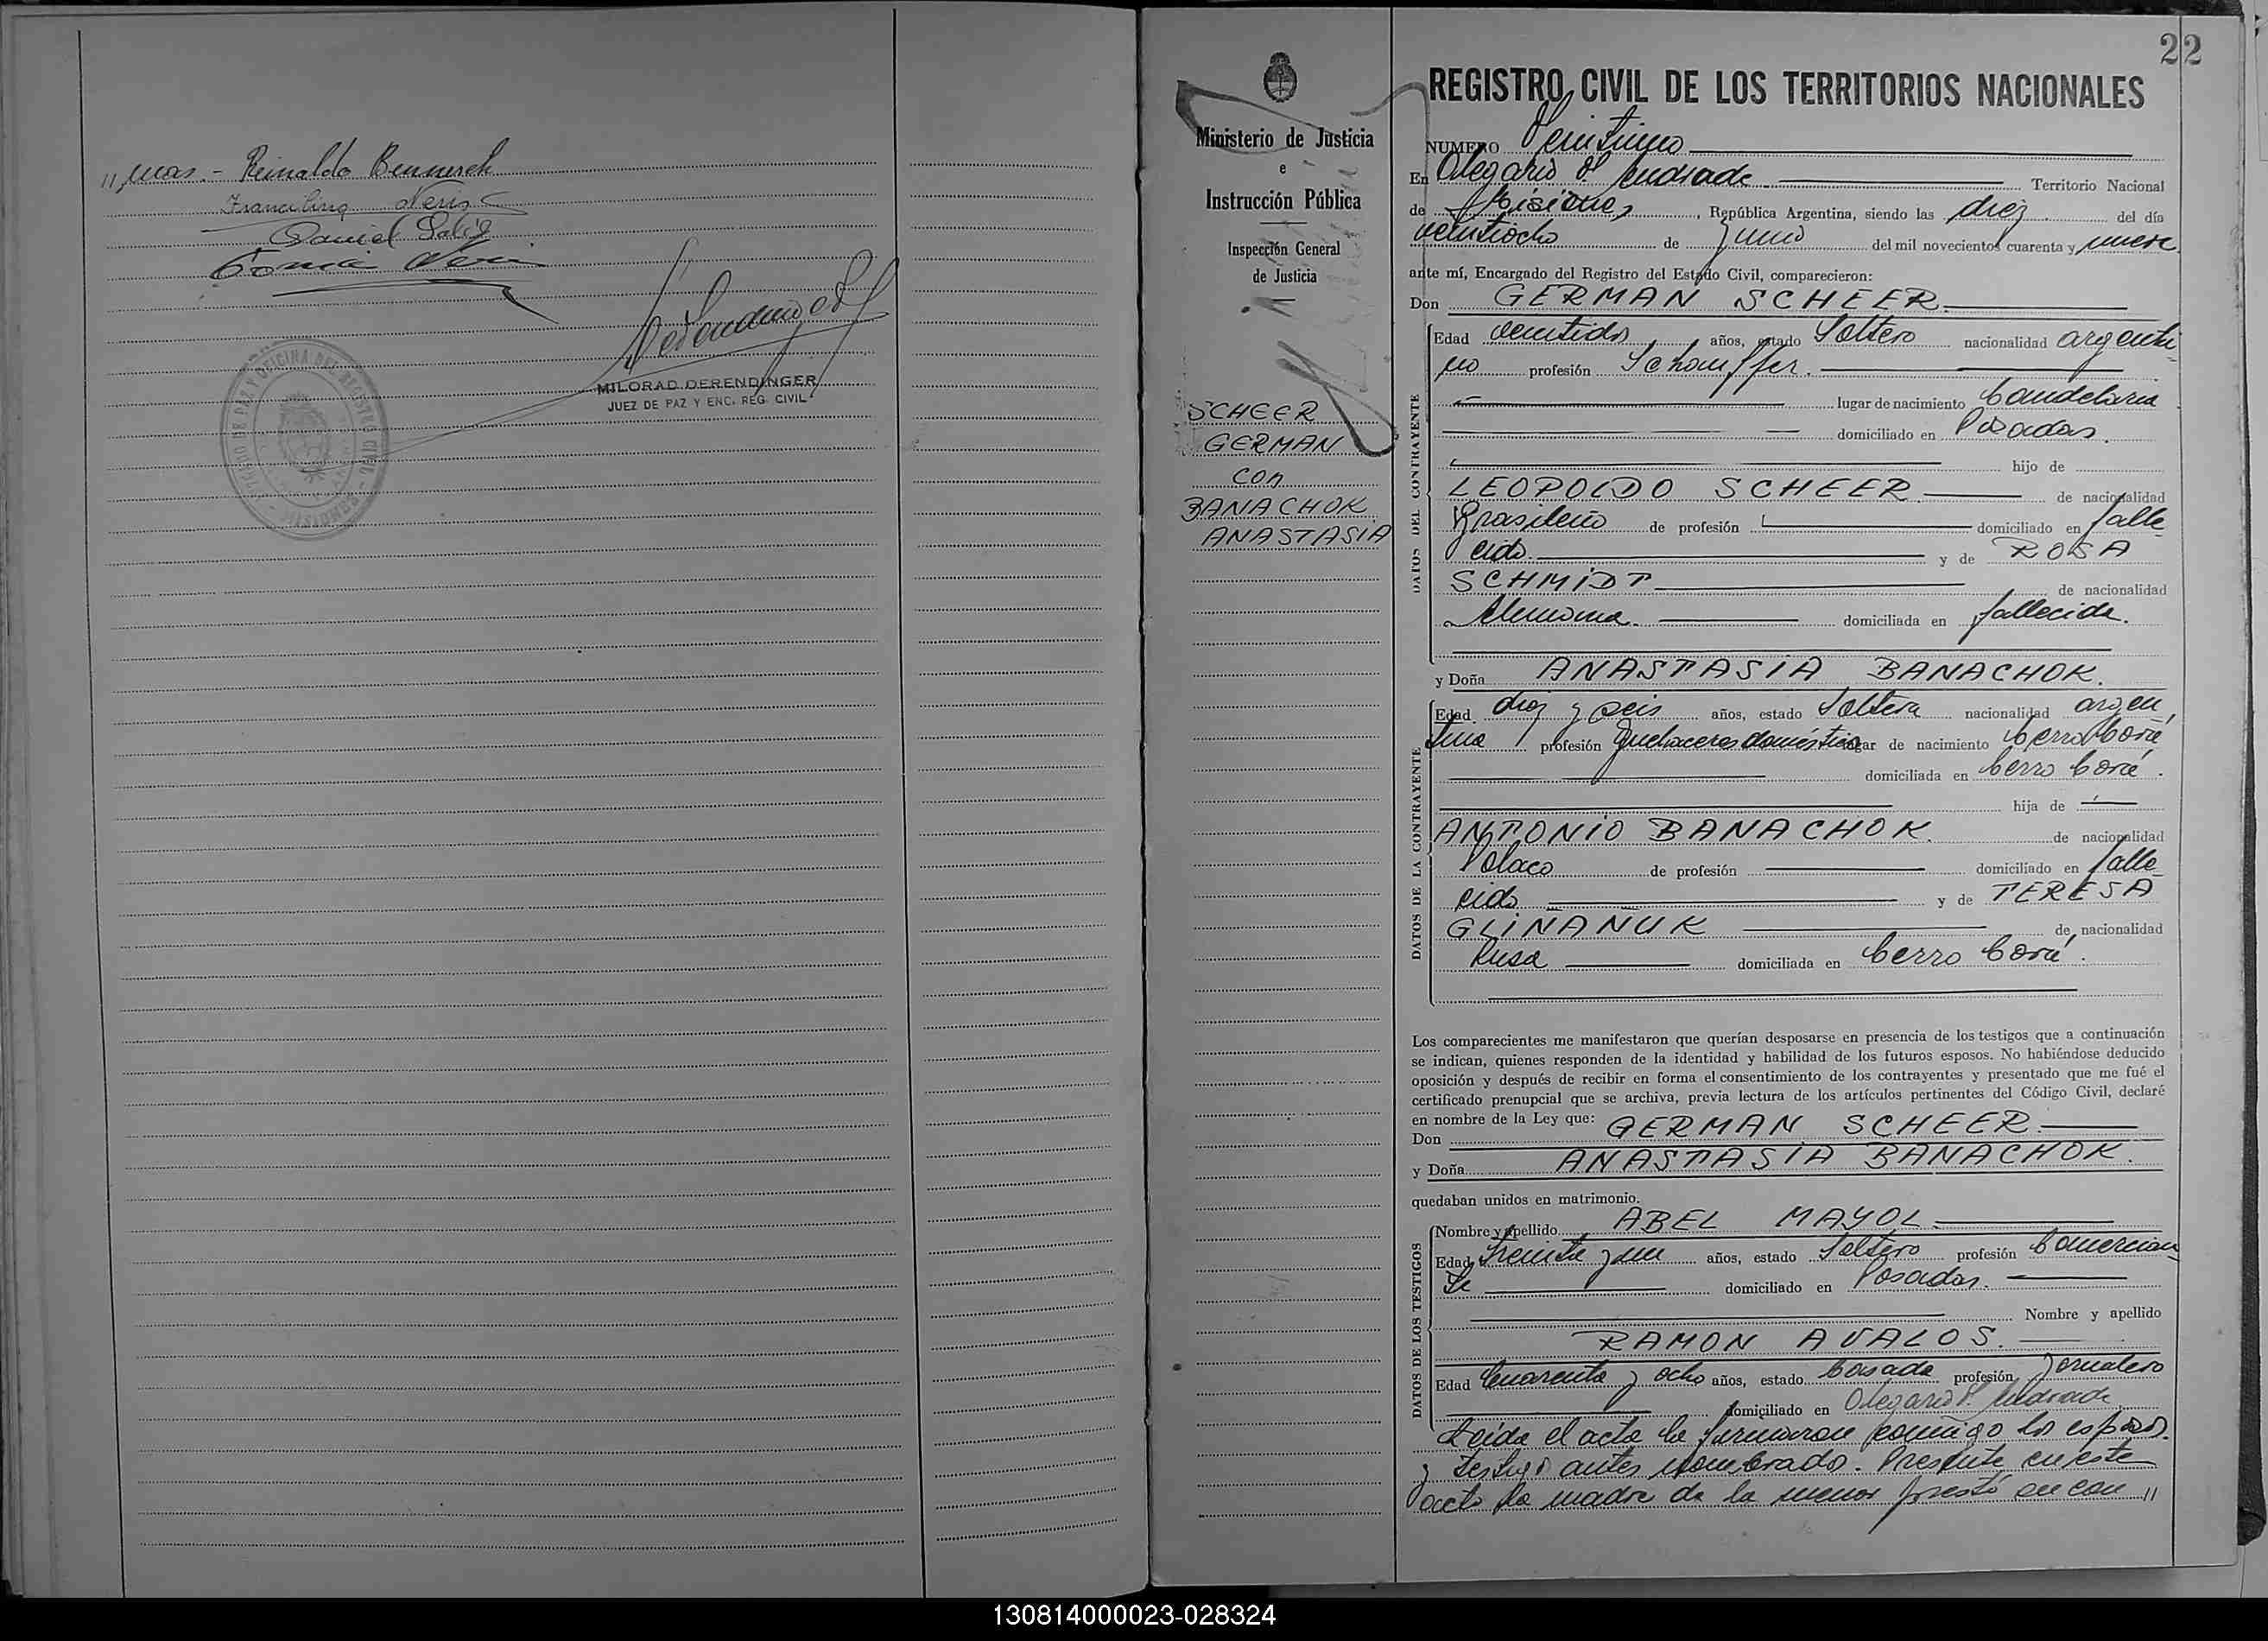 " mas.- Reinaldo Bennesch
Daniel
MILORAD DERENDINGER
JUEZ DE PAZ Y ENC. REG. CIVIL
22
Ministerio de Justicia
e
Instrucción Pública
Inspección General
de Justicia
SCHEER
GERMAN
con
BANACHOK
ANASTASIA
REGISTRO CIVIL DE LOS TERRITORIOS NACIONALES
NUMERO Veintiuno
En Olegario V. Andrade Territorio Nacional
de Misiones, República Argentina, siendo las diez del día
veintiocho de Junio del mil novecientos cuarenta y nueve
ante mí, Encargado del Registro del Estado Civil, comparecieron:
Don GERMAN SCHEER.
DATOS DEL CONTRAYENTE
Edad veintidos años, estado Soltero nacionalidad argenti
no profesión Schauffer.
lugar de nacimiento Candelaria
domiciliado en Posadas.
hijo de
LEOPOLDO SCHEER de nacionalidad
Brasilero de profesión domiciliado en falle
cido. y de ROSA
SCHMIDT de nacionalidad
Alemana. domiciliada en fallecida.
y Doña ANASTASIA BANACHOK.
DATOS DE LA CONTRAYENTE
Edad diez y seis años, estado Soltera nacionalidad argen
tina profesión Quehaceres domésticos lugar de nacimiento Cerro Corá
domiciliada en Cerro Corá.
hija de
ANTONIO BANACHOK. de nacionalidad
Polaco de profesión domiciliado en falle
cido y de TERESA
GLINANUK de nacionalidad
Rusa domiciliada en Cerro Corá.
Los comparecientes me manifestaron que querían desposarse en presencia de los testigos que a continuación
se indican, quienes responden de la identidad y habilidad de los futuros esposos. No habiéndose deducido
oposición y después de recibir en forma el consentimiento de los contrayentes y presentado que me fué el
certificado prenupcial que se archiva, previa lectura de los artículos pertinentes del Código Civil, declaré
en nombre de la Ley que:
Don GERMAN SCHEER.
y Doña ANASTASIA BANACHOK.
quedaban unidos en matrimonio.
DATOS DE LOS TESTIGOS
Nombre y apellido ABEL MAYOL
Edad treinta y un años, estado Soltero profesión Comercian
te domiciliado en Posadas.
Nombre y apellido
RAMON AVALOS.
Edad Cuarenta y ocho años, estado Casado profesión Jornalero
domiciliado en Olegario V. Andrade
Leída el acta la firmaron conmigo los esposos
y testigos antes nombrados. Presente en este
acto la madre de la menor prestó su con "
130814000023-028324